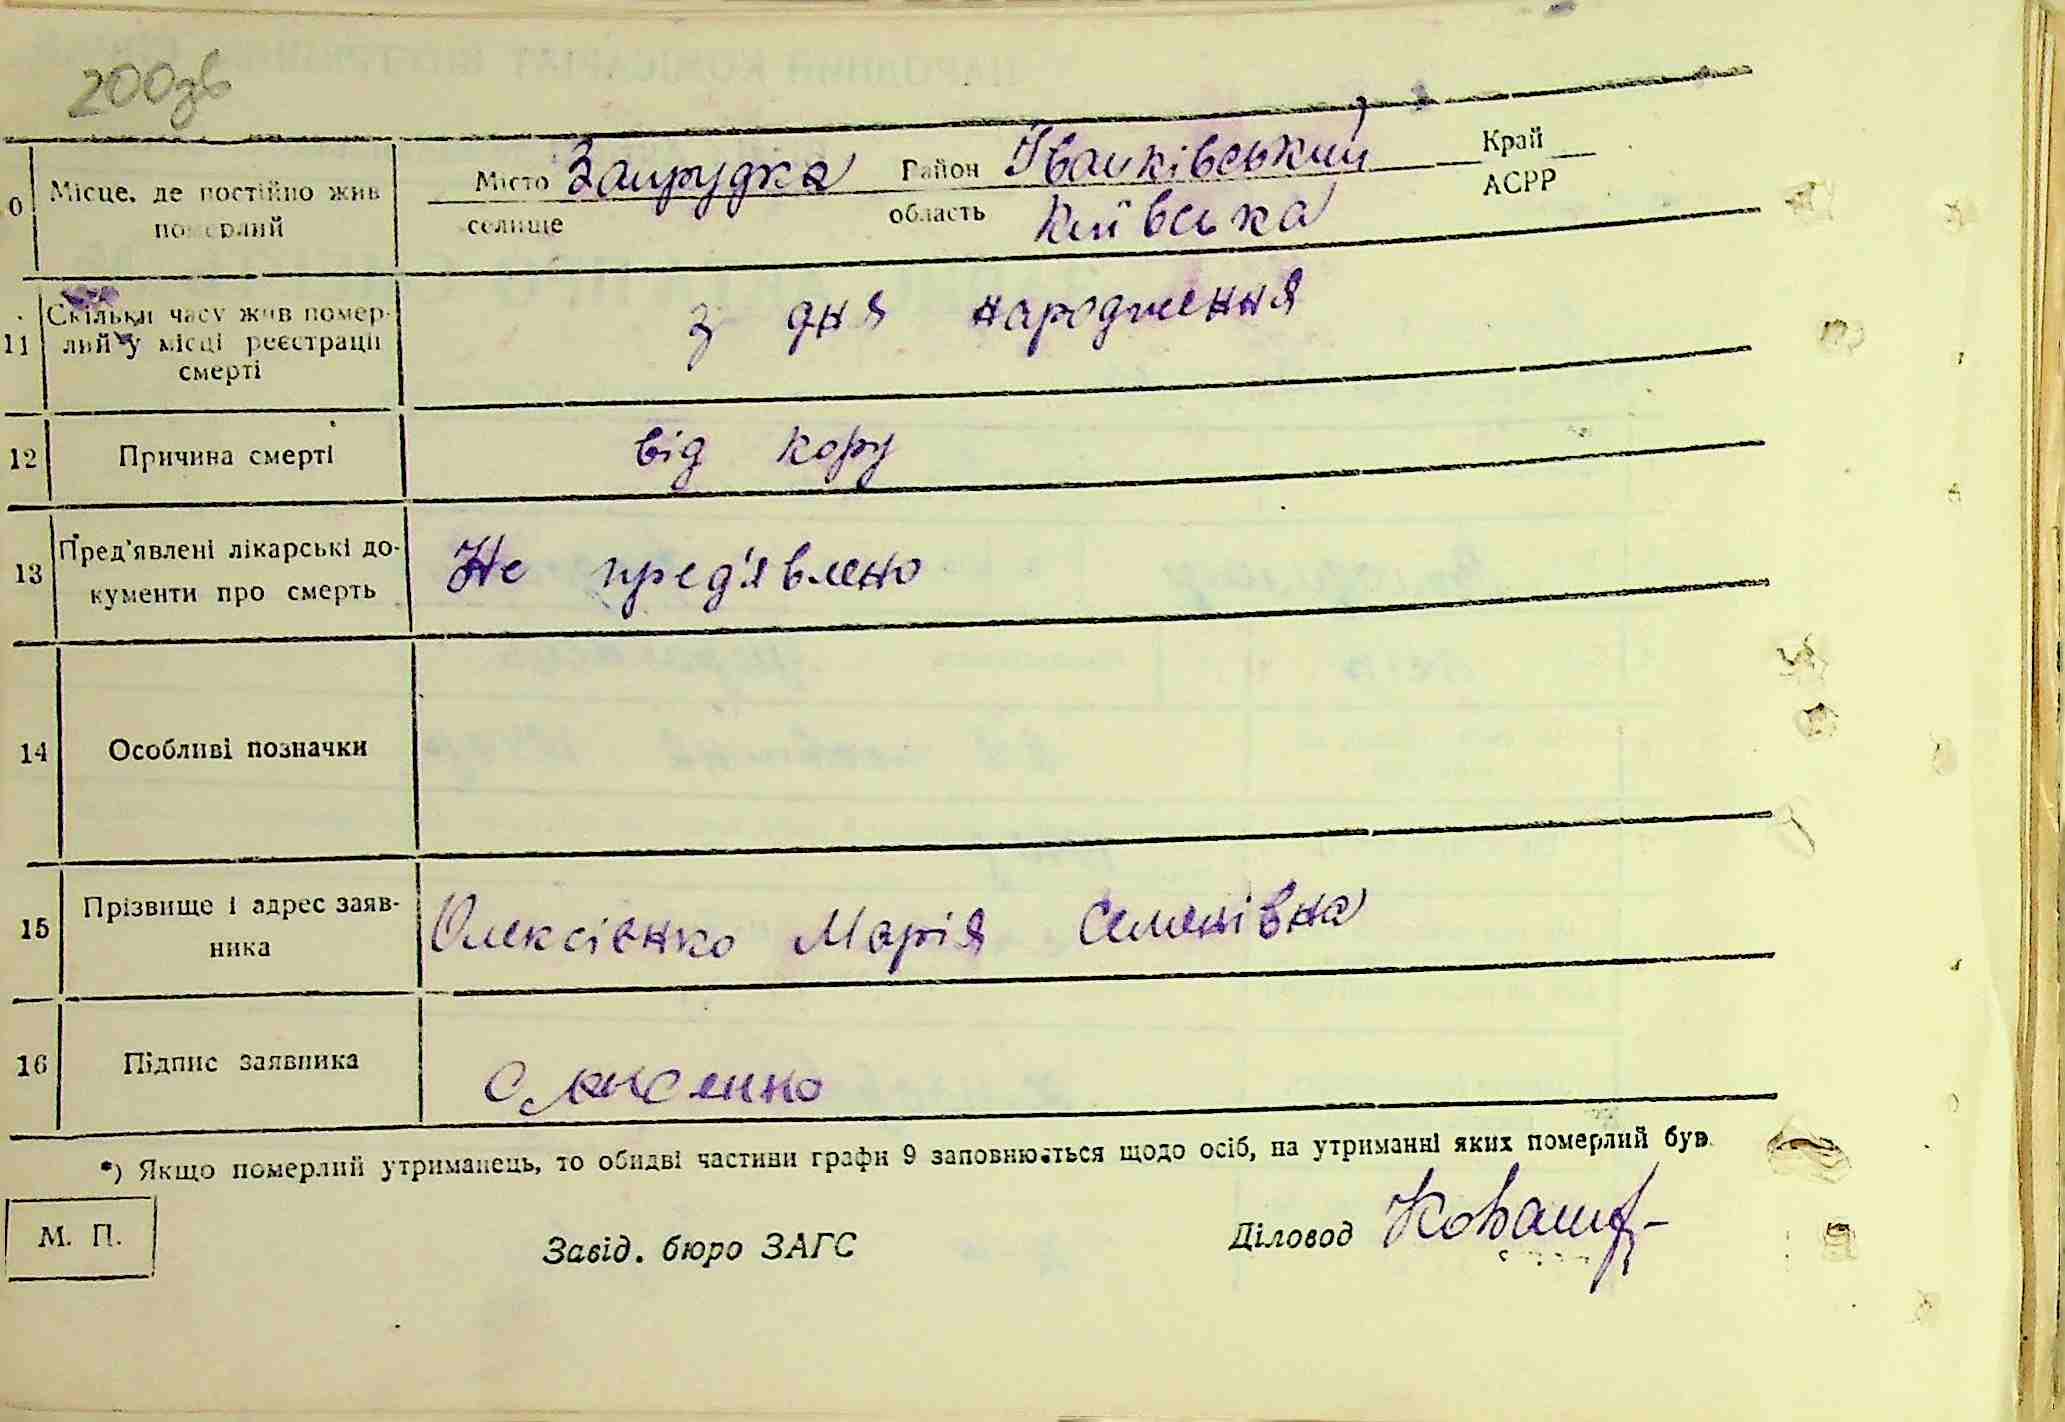 200зв
0 Місце, де постійно жив померлий
Місто Запрудка Район Іванківський Край
селище область Київська АСРР
11 Скільки часу жив помер-
лий у місці реєстрації
смерті
з дня народження
12 Причина смерті від кору
13 Пред'явлені лікарські до-
кументи про смерть
Не пред'явлено
14 Особливі позначки
15 Прізвище і адрес заяв-
ника
Олексієнко Марія Семенівна
16 Підпис заявника
*) Якщо померлий утриманець, то обидві частини графи 9 заповнюються щодо осіб, на утриманні яких померлий був.
М. П.
Завід. бюро ЗАГС
Діловод